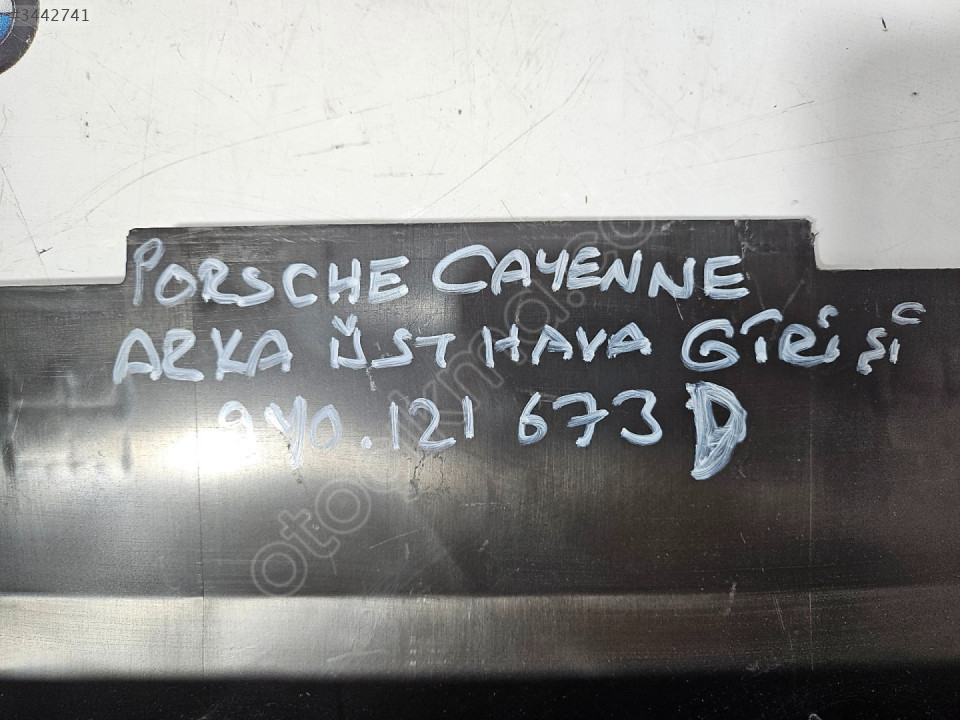 #3442741
PORSCHE CAYENNE
ARKA ÜST HAVA GİRİŞİ
9Y0.121 673 D
otocikma.com